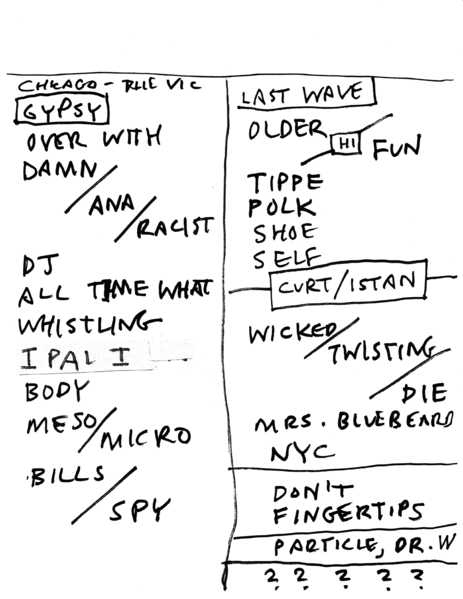 CHICAGO - THE VIC
GYPSY
OVER WITH
DAMN/
ANA/
RACIST
DJ
ALL TIME WHAT
WHISTLING
I PAL I
BODY
MESO/
MICRO
BILLS/
SPY
LAST WAVE
OLDER
HI
FUN
TIPPE
POLK
SHOE
SELF
CURT/ISTAN
WICKED/
TWISTING/
DIE
MRS. BLUEBEARD
NYC
DON'T
FINGERTIPS
PARTICLE, DR. W
? ? ? ? ?